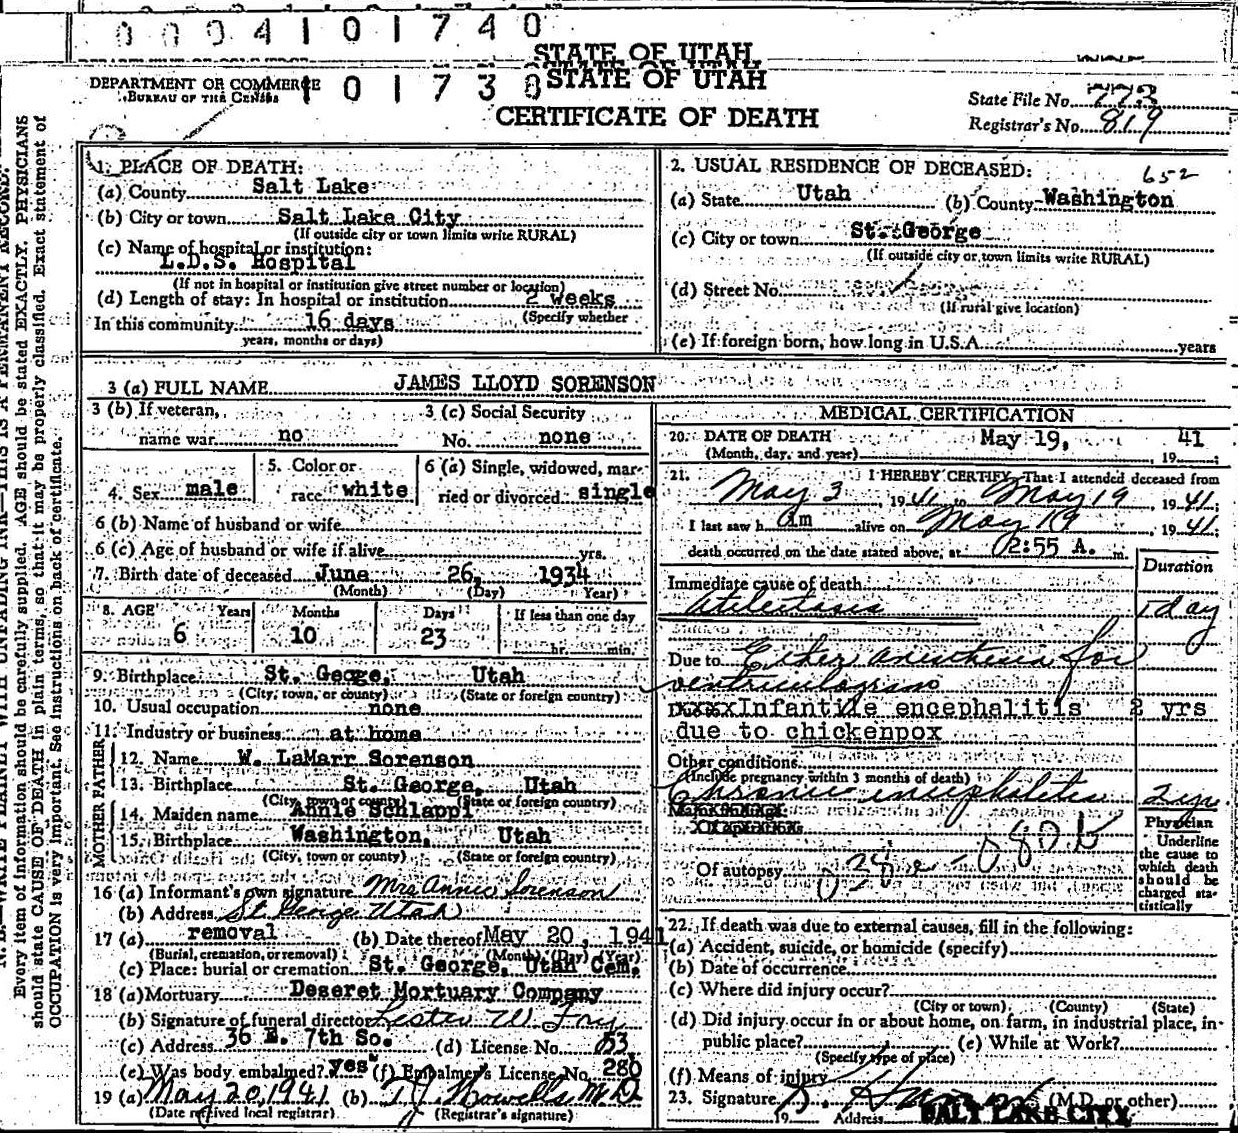 0004101740
STATE OF UTAH
DEPARTMENT OF COMMERCE
BUREAU OF THE CENSUS
101730
STATE OF UTAH
CERTIFICATE OF DEATH
State File No. 773
Registrar's No. 819
Every item of information should be carefully supplied. AGE should be stated EXACTLY. PHYSICIANS
should state CAUSE OF DEATH in plain terms, so that it may be properly classified. Exact statement of
OCCUPATION is very important. See instructions on back of certificate.
1. PLACE OF DEATH:
(a) County Salt Lake
(b) City or town Salt Lake City
(If outside city or town limits write RURAL)
(c) Name of hospital or institution:
L.D.S. Hospital
(If not in hospital or institution give street number or location)
(d) Length of stay: In hospital or institution 2 weeks
(Specify whether
In this community 16 days
years, months or days)
2. USUAL RESIDENCE OF DECEASED:
652
(a) State Utah (b) County Washington
(c) City or town St. George
(If outside city or town limits write RURAL)
(d) Street No.
(If rural give location)
(e) If foreign born, how long in U.S.A. years
3 (a) FULL NAME JAMES LLOYD SORENSON
3 (b) If veteran, 3 (c) Social Security
name war no No. none
4. Sex male 5. Color or race white 6 (a) Single, widowed, married or divorced single
6 (b) Name of husband or wife
6 (c) Age of husband or wife if alive yrs.
7. Birth date of deceased June 26, 1934
(Month) (Day) Year)
8. AGE Years Months Days If less than one day
6 10 23 hr. min.
9. Birthplace St. Geoge, Utah
(City, town, or county) (State or foreign country)
10. Usual occupation none
11. Industry or business at home
FATHER
12. Name W. LaMarr Sorenson
13. Birthplace St. George, Utah
(City, town or county) (State or foreign country)
MOTHER
14. Maiden name Annie Schlappi
15. Birthplace Washington, Utah
(City, town or county) (State or foreign country)
16 (a) Informant's own signature Mrs Annie Sorenson
(b) Address St George Utah
17 (a) removal (b) Date thereof May 20, 1941
(Burial, cremation, or removal) (Month) (Day) (Year)
(c) Place: burial or cremation St. George, Utah Cem.
18 (a) Mortuary Deseret Mortuary Company
(b) Signature of funeral director Lester W. Fry
(c) Address 36 E. 7th So. (d) License No. 53
(e) Was body embalmed? yes (f) Embalmer's License No. 286
19 (a) May 20, 1941 (b) M.D.
(Date received local registrar) (Registrar's signature)
MEDICAL CERTIFICATION
20. DATE OF DEATH May 19, 41
(Month, day, and year) 19
21. I HEREBY CERTIFY, That I attended deceased from
May 3, 1941 to May 19, 1941.
I last saw h im alive on May 19, 1941.
death occurred on the date stated above, at 02:55 A. m.
Duration
Immediate cause of death
Atelectasis 1 day
Due to Ether anesthesia for
ventriculogram
Infantile encephalitis 2 yrs
due to chickenpox
Other conditions
(Include pregnancy within 3 months of death)
Chronic encephalitis 2 yrs
Physician
Underline the cause to which death should be charged statistically
Of autopsy 038e - 080b
22. If death was due to external causes, fill in the following:
(a) Accident, suicide, or homicide (specify)
(b) Date of occurrence
(c) Where did injury occur?
(City or town) (County) (State)
(d) Did injury occur in or about home, on farm, in industrial place, in-
public place? (e) While at Work?
(Specify type of place)
(f) Means of injury
23. Signature (M.D. or other)
19 Address SALT LAKE CITY